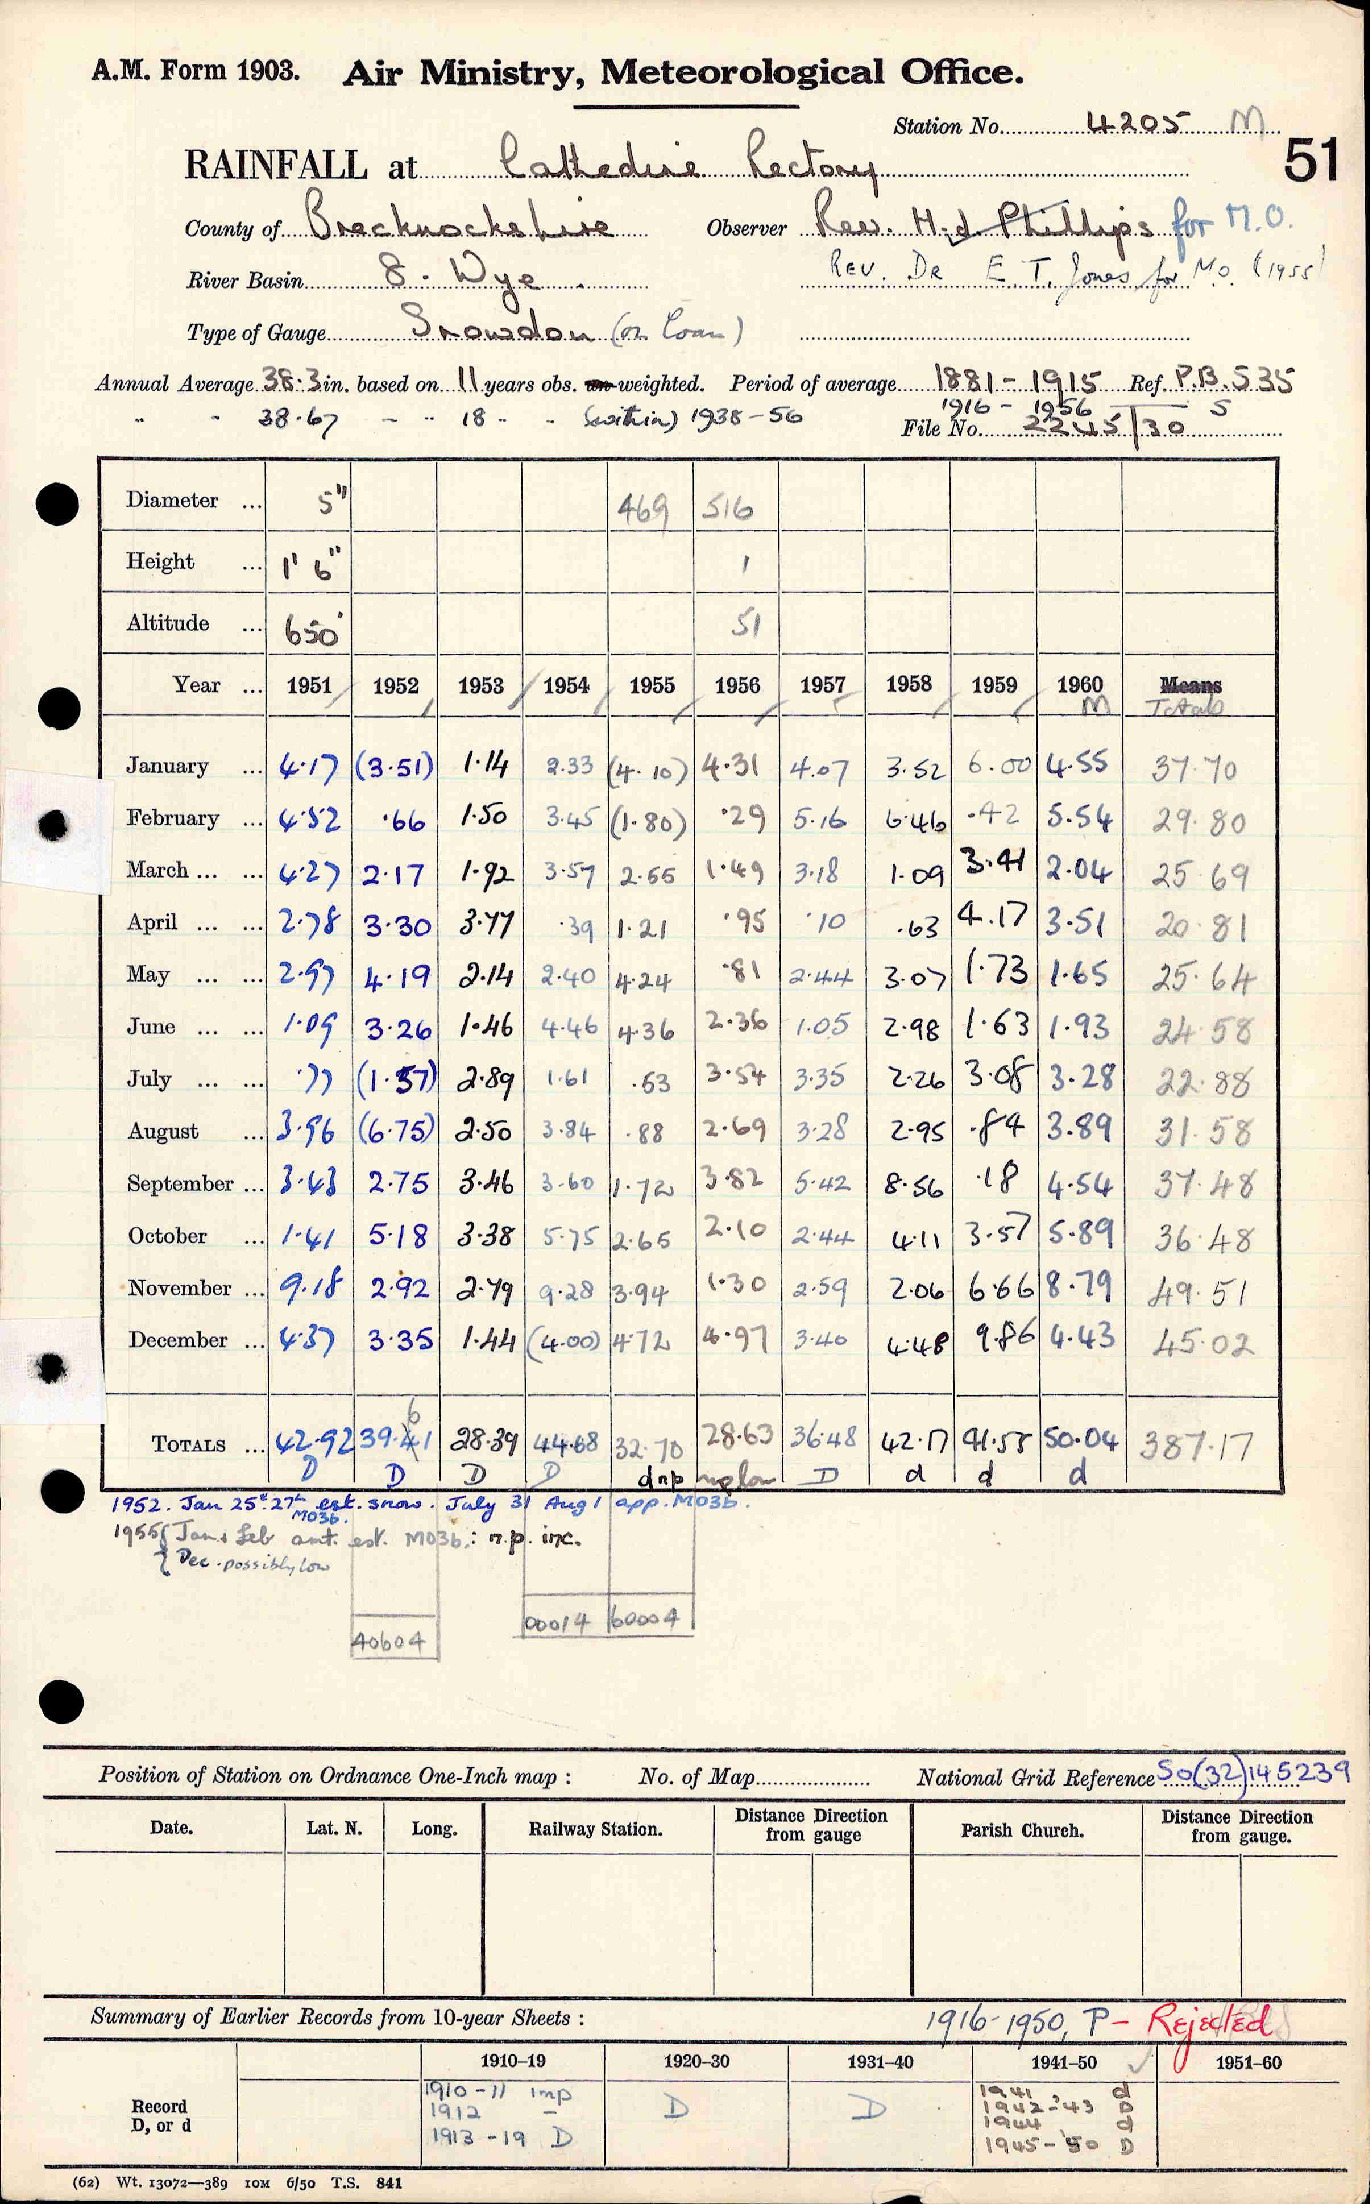 A.M. Form 1903. Air Ministry, Meteorological Office.
Station No. 4205 M
51
RAINFALL at Cathedine Rectory
County of Brecknockshire Observer Rev. H.J. Phillips for M.O.
River Basin 8. Wye Rev. Dr E. T. Jones for M.O. (1955)
Type of Gauge Snowdon (on loan)
Annual Average 38.3 in. based on 11 years obs. un-weighted. Period of average 1881-1915 Ref. P.B. S35
" " 38.67 - " 18 " " (within) 1938-56 1916-1956 S
File No. 2245/30
Diameter ... 5" 469 516
Height ... 1' 6" 1
Altitude ... 650' 51
Year ... 1951 1952 1953 1954 1955 1956 1957 1958 1959 1960 Means
M Totals
January ... 4.17 (3.51) 1.14 2.33 (4.10) 4.31 4.07 3.52 6.00 4.55 37.70
February ... 4.52 .66 1.50 3.45 (1.80) .29 5.16 6.46 .42 5.54 29.80
March ... ... 4.27 2.17 1.92 3.57 2.55 1.49 3.18 1.09 3.41 2.04 25.69
April ... ... 2.78 3.30 3.77 .39 1.21 .95 .10 .63 4.17 3.51 20.81
May ... ... 2.97 4.19 2.14 2.40 4.24 .81 2.44 3.07 1.73 1.65 25.64
June ... ... 1.09 3.26 1.46 4.46 4.36 2.36 1.05 2.98 1.63 1.93 24.58
July ... ... .77 (1.57) 2.89 1.61 .53 3.54 3.35 2.26 3.08 3.28 22.88
August ... 3.96 (6.75) 2.50 3.84 .88 2.69 3.28 2.95 .84 3.89 31.58
September ... 3.43 2.75 3.46 3.60 1.72 3.82 5.42 8.56 .18 4.54 37.48
October ... 1.41 5.18 3.38 5.75 2.65 2.10 2.44 4.11 3.57 5.89 36.48
November ... 9.18 2.92 2.79 9.28 3.94 1.30 2.59 2.06 6.66 8.79 49.51
December ... 4.37 3.35 1.44 (4.00) 4.72 4.97 3.40 4.48 9.86 4.43 45.02
6
Totals ... 42.92 39.41 28.39 44.68 32.70 28.63 36.48 42.17 41.55 50.04 387.17
D D D D dnp np low D d d d
1952. Jan 25th-27th est. snow. July 31 Aug 1 app. MO3b.
MO3b.
1955 { Jan & Feb amt. est. MO3b.: n.p. inc.
{ Dec. possibly low
00014 60004
40604
Position of Station on Ordnance One-Inch map : No. of Map National Grid Reference SO(32)145239
Date. Lat. N. Long. Railway Station. Distance from gauge Direction Parish Church. Distance from gauge. Direction
Summary of Earlier Records from 10-year Sheets : 1916-1950, P - Rejected
1910-19 1920-30 1931-40 1941-50 1951-60
Record D, or d
1910-11 imp
1912 -
1913-19 D
D D
1941 d
1942-'43 D
1944 d
1945-50 D
(62) Wt. 13072—389 10M 6/50 T.S. 841